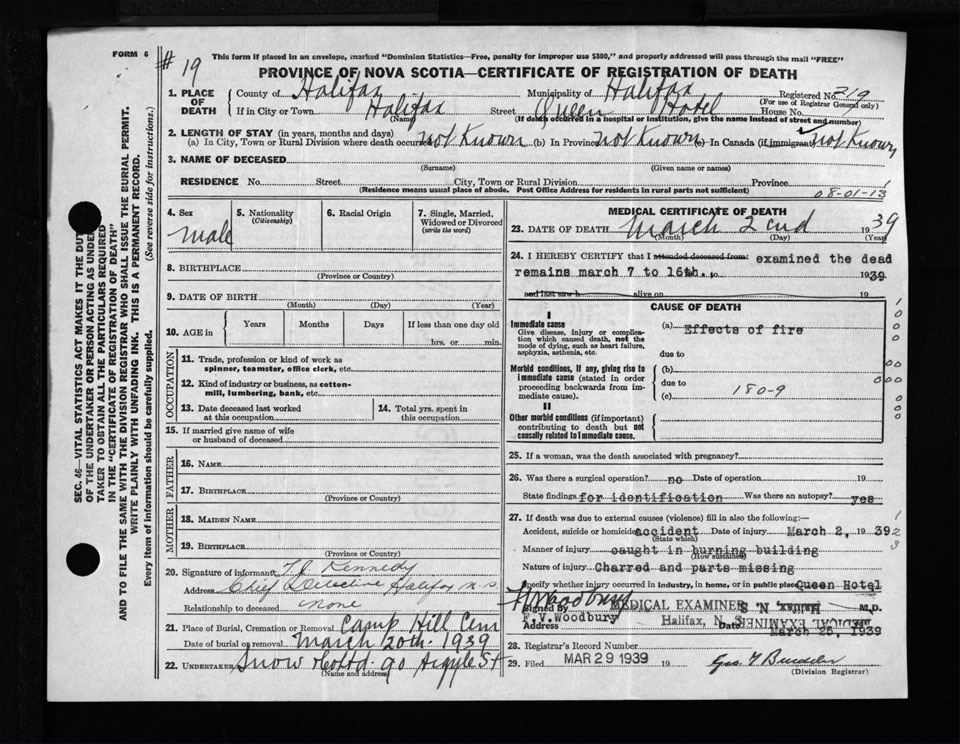 FORM 6
# 19
This form if placed in an envelope, marked "Dominion Statistics—Free, penalty for improper use $300," and properly addressed will pass through the mail "FREE"
PROVINCE OF NOVA SCOTIA—CERTIFICATE OF REGISTRATION OF DEATH
1. PLACE OF DEATH
County of Halifax Municipality of Halifax Registered No. 219
(For use of Registrar General only)
If in City or Town Halifax Street Queen Hotel House No.
(Name) (If death occurred in a hospital or institution, give the name instead of street and number)
2. LENGTH OF STAY (in years, months and days)
(a) In City, Town or Rural Division where death occurred not Known (b) In Province not Known (c) In Canada (if immigrant) not Known
3. NAME OF DECEASED
(Surname) (Given name or names)
RESIDENCE No. Street City, Town or Rural Division Province
(Residence means usual place of abode. Post Office Address for residents in rural parts not sufficient)
08-01-13
4. Sex
male
5. Nationality
(Citizenship)
6. Racial Origin
7. Single, Married, Widowed or Divorced
(write the word)
8. BIRTHPLACE
(Province or Country)
9. DATE OF BIRTH
(Month) (Day) (Year)
10. AGE in
Years Months Days If less than one day old
hrs. or min.
OCCUPATION
11. Trade, profession or kind of work as
spinner, teamster, office clerk, etc.
12. Kind of industry or business, as cotton-
mill, lumbering, bank, etc.
13. Date deceased last worked
at this occupation
14. Total yrs. spent in
this occupation
15. If married give name of wife
or husband of deceased
FATHER
16. NAME
17. BIRTHPLACE
(Province or Country)
MOTHER
18. MAIDEN NAME
19. BIRTHPLACE
(Province or Country)
20. Signature of informant T.J. Kennedy
Address Chief Detective Halifax N.S.
Relationship to deceased none
21. Place of Burial, Cremation or Removal Camp Hill Cem
Date of burial or removal March 20th 1939
22. UNDERTAKER Snow & Co Ltd 90 Argyle St
(Name and address)
MEDICAL CERTIFICATE OF DEATH
23. DATE OF DEATH March 2 cnd 1939
(Month) (Day) (Year)
24. I HEREBY CERTIFY that I attended deceased from: examined the dead
remains march 7 to 16th. to 1939
and last saw h alive on 19
CAUSE OF DEATH
I
Immediate cause
Give disease, injury or complica-
tion which caused death, not the
mode of dying, such as heart failure,
asphyxia, asthenia, etc.
(a) Effects of fire
due to
Morbid conditions, if any, giving rise to
immediate cause (stated in order
proceeding backwards from im-
mediate cause).
(b)
due to
(c) 180-9
II
Other morbid conditions (if important)
contributing to death but not
causally related to immediate cause.
25. If a woman, was the death associated with pregnancy?
26. Was there a surgical operation? no Date of operation 19
State findings for identification Was there an autopsy? yes
27. If death was due to external causes (violence) fill in also the following:—
Accident, suicide or homicide accident Date of injury March 2, 1939
(State which)
Manner of injury caught in burning building
(How sustained)
Nature of injury Charred and parts missing
Specify whether injury occurred in industry, in home, or in public place Queen Hotel
Signed by F V Woodbury M.D.
F.V.Woodbury MEDICAL EXAMINER
Address Halifax, N. S. Date March 25, 1939
MEDICAL EXAMINER
Halifax, N. S.
28. Registrar's Record Number
29. Filed MAR 29 1939 19
(Division Registrar)
SEC. 46—VITAL STATISTICS ACT MAKES IT THE DUTY
OF THE UNDERTAKER OR PERSON ACTING AS UNDER-
TAKER TO OBTAIN ALL THE PARTICULARS REQUIRED
IN THE "CERTIFICATE OF REGISTRATION OF DEATH"
AND TO FILE THE SAME WITH THE DIVISION REGISTRAR WHO SHALL ISSUE THE BURIAL PERMIT.
WRITE PLAINLY WITH UNFADING INK. THIS IS A PERMANENT RECORD.
Every item of information should be carefully supplied. (See reverse side for instructions.)